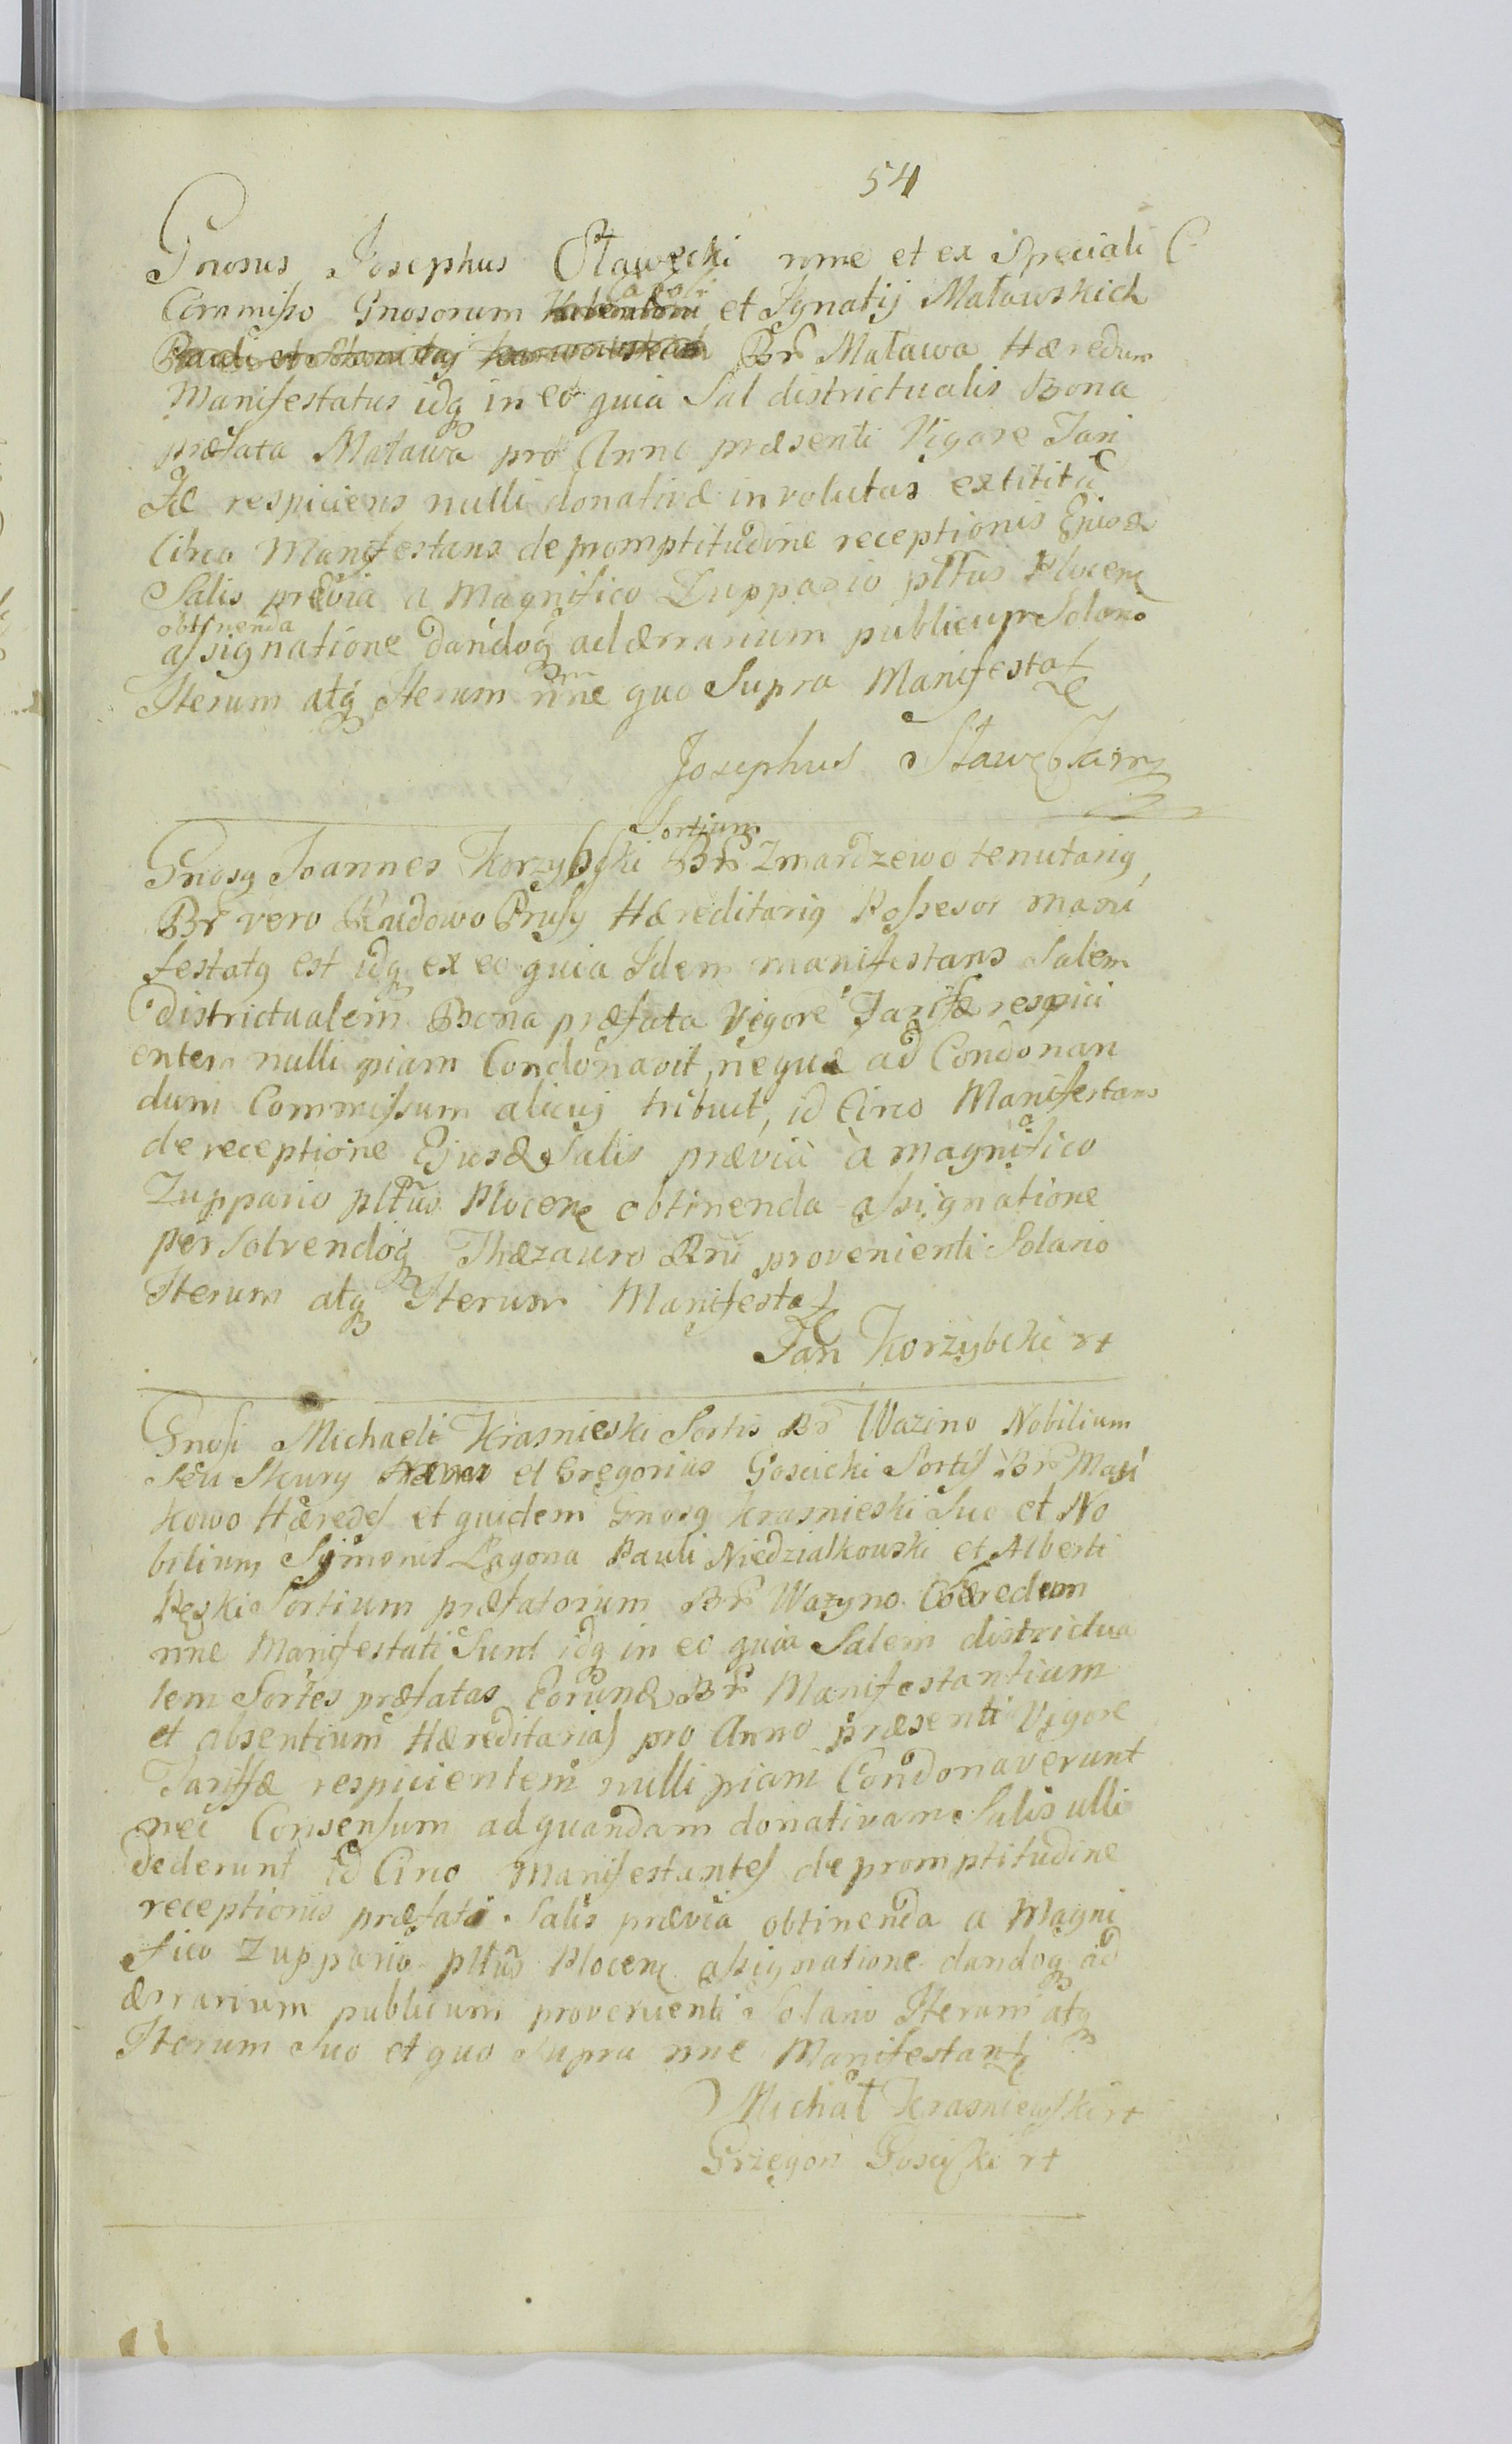 54
Gnosus Josephus Stawecki nome et ex Speciali C
Commisso Gnosorum Caroli et Ignatij Maławskich
Br Maława Hæredum
Manifestatus idq in eo quia Sal districtualis Bona
præfata Maława pro Anno præsenti Vigore Tari
fæ respiciens nulli donativæ involutus extitit id
Circo Manifestans de promptitudine receptionis Ejusd
Salis prævia a Magnifico Zuppario pltus Plocen
obtinenda
assignatione dandoq ad ærrarium publicum Solario
Iterum atq Iterum nne quo Supra Manifestat
Josephus Stawe
Sortium
Gnosq Joannes Korzybski Br Zmardzewo tenutariq,
Br vero Rudowo Prusy Hæreditariq Possesor mani
festatq est idq ex eo quia Idem manifestans Salem
districtualem Bona præfata Vigore Tarifæ respici
entem nulli piam Condonavit, neque ad Condonan
dum Commissum alicuj tribuit, id Circo Manifestans
de receptione Ejusd Salis prævia à magnifico
Zuppario pltus Plocen obtinenda assignatione
persolvendoq Thæzauro Rni provenienti Solario
Iterum atq Iterum Manifestat
Jan Korzybcki r+
Gnosi Michaeli Krasnieski Sortis Br Wazino Nobilium
Seu Skury et Gregorius Goscicki Sortis Br Masi
kowo Hæredes et quidem Gnosq Krasnieski Suo et No
bilium Symonis Lagona Pauli Niedzialkowski et Alberti
Peski Sortium præfatorium Br Wazyno Coæredum
nne Manifestati Sunt idq in eo quia Salem districtua
lem Sortes præfatas Eorund Br Manifestantium
et absentium Hæreditarias pro Anno præsenti Vigore
Tariffæ respicientem nulli piam Condonaverunt
nec Consensum ad quandam donativam Salis ulli
dederunt id Circo Manifestantes de promptitudine
receptionis præfati Salis prævia obtinenda a Magni
fico Zuppario pltus Plocen assignatione dandoq ad
ærrarium publicum provenienti Solario Iterum atq
Iterum Suo et quo Supra nne Manifestant
Michał Krasniewski r+
Grzegorz Goscicki r+